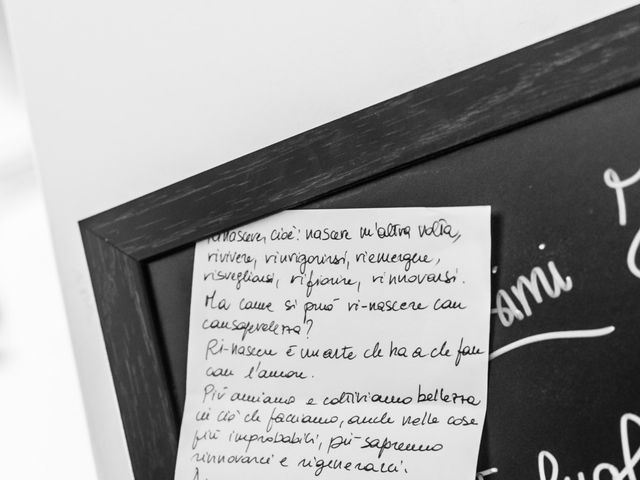 Rinascere, cioè: nascere un'altra volta,
rivivere, rinvigorirsi, riemergere,
risvegliarsi, rifiorire, rinnovarsi.
Ma come si può ri-nascere con
consapevolezza?
Ri-nascere è un'arte che ha a che fare
con l'amore.
Più amiamo e coltiviamo bellezza
in ciò che facciamo, anche nelle cose
più improbabili, più sapremo
rinnovarci e rigenerarci.
ami